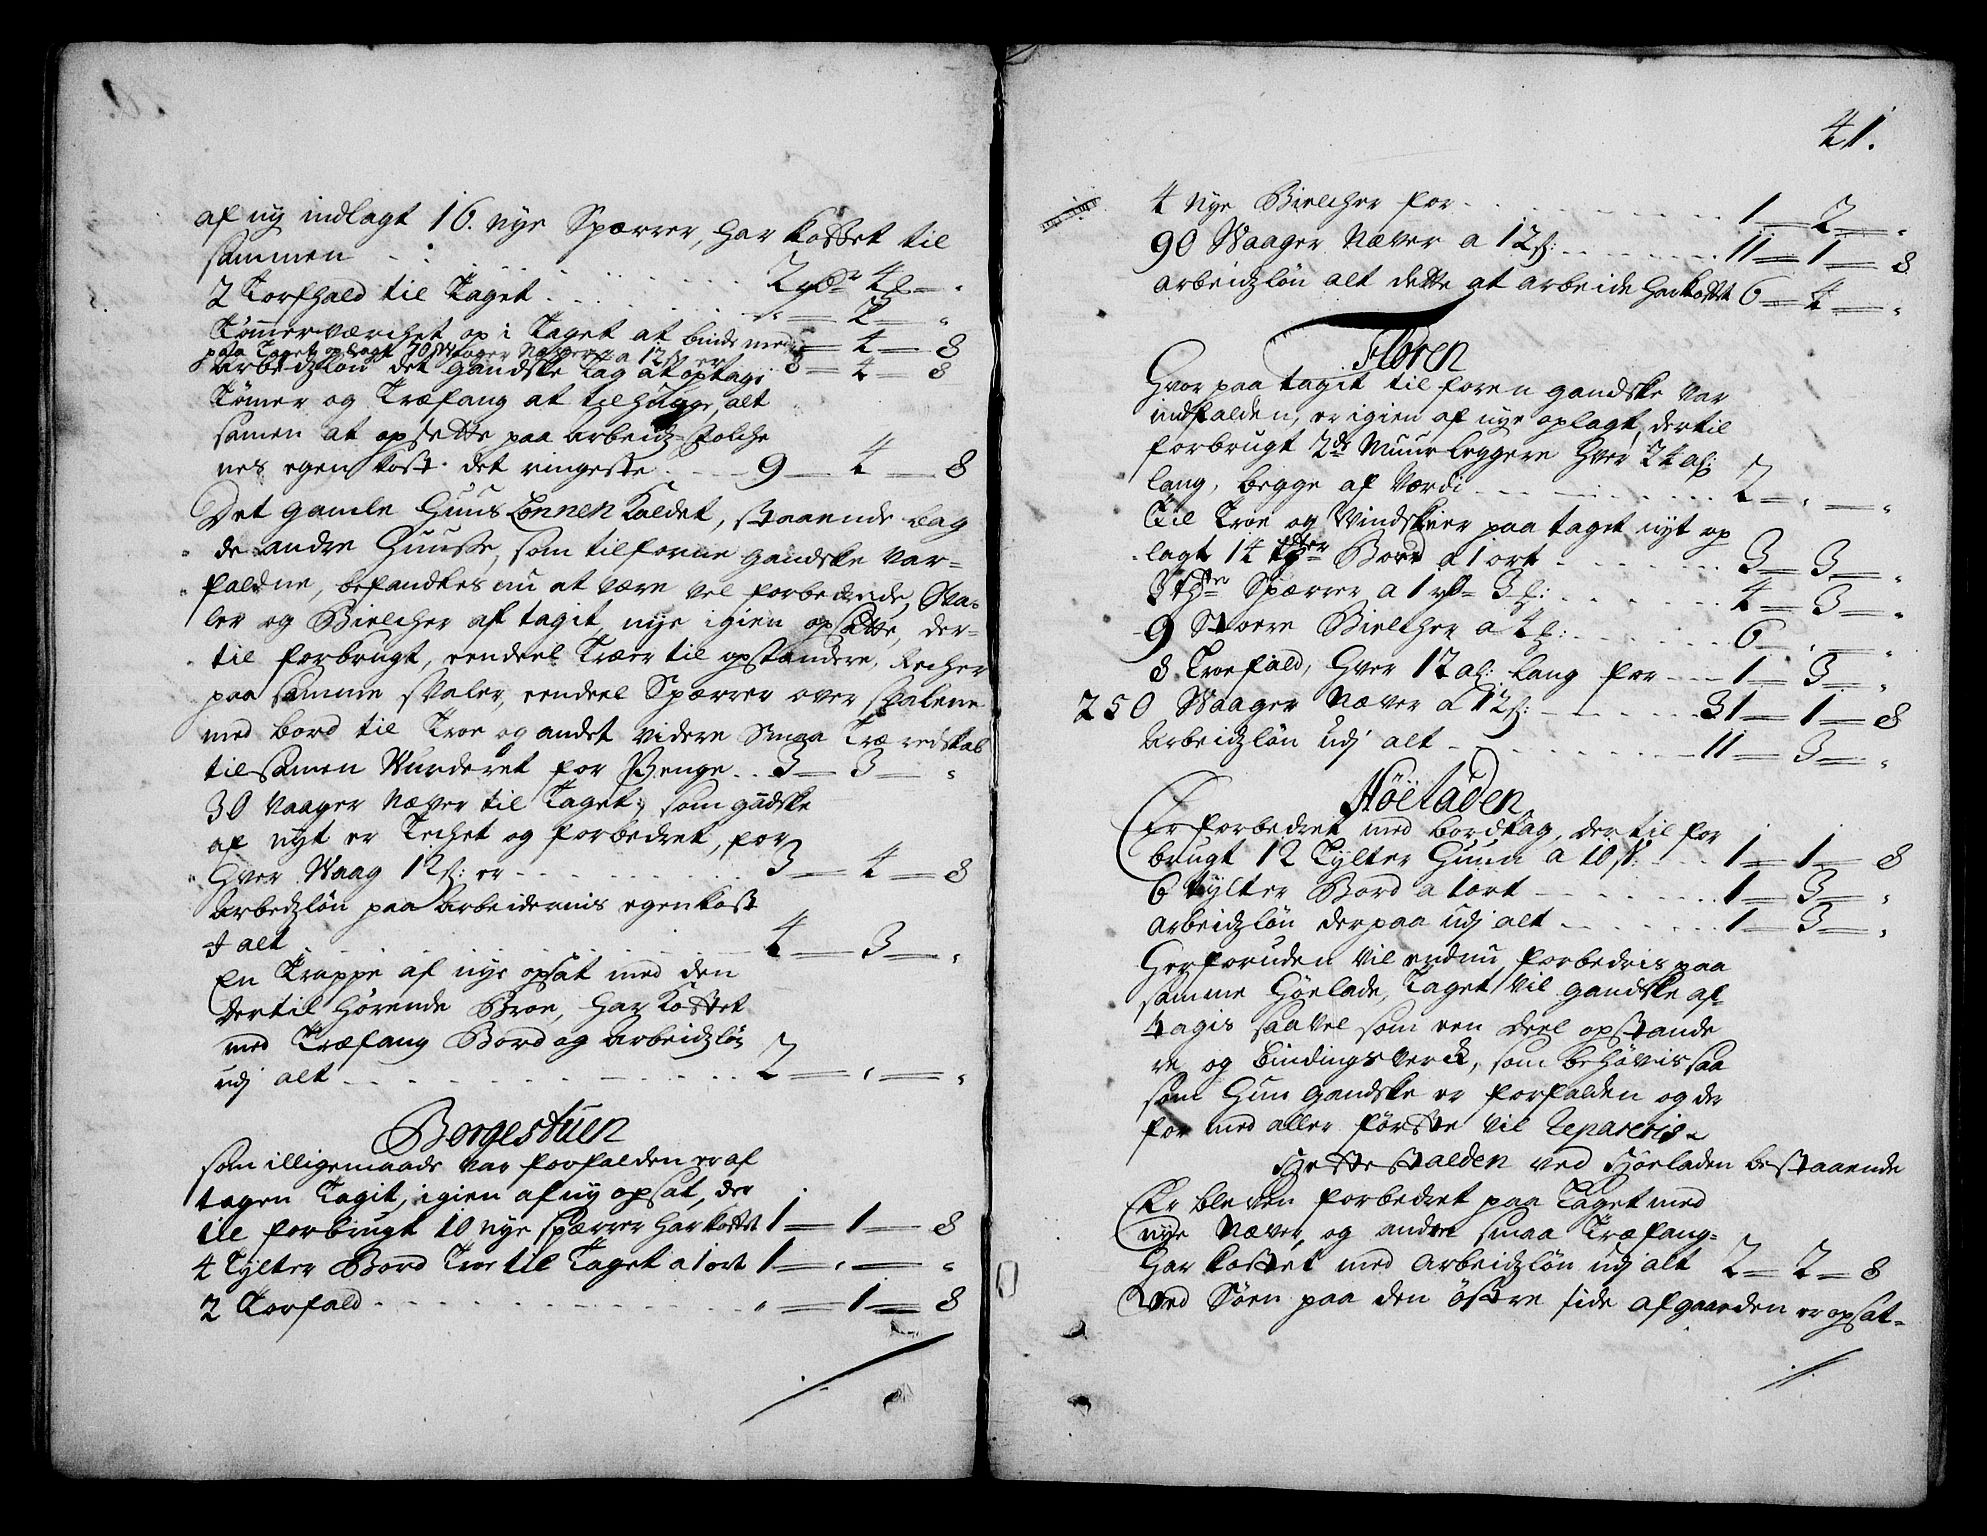 af ny indlagt 16. nye Spærrer, har kostet til
sammen . . . . 2 rdr 4 —
2 Torfhald til Taget . . . . „ — 2 — „
Tømmerværchet op i Taget at binde med — 4 — 8
paa Taget oplagt 70 Waager Næver a 12 s: er 8 — 4 — 8
Arbeidzløn det gandske Tag at optage
Tømer og Træfang at tilhugge, alt
samen at opsette paa arbeidz-folche
nes egen kost. det ringeste . . . 9 — 4 — 8
Det gamle Huus Lønnen kaldet, staaende
de andre Huusse, som tilforne gandske var
faldne, befandtes nu at være vel forbedrede, Sva-
ler og Bielcher af tagit, nye igien opsatte, der-
til forbrugt, eendeel Træer til opstandere, Recher
paa samme svaler, eendeel Spærrer over svalene
med bord til Troe og andet videre smaa Træ redskab
tilsamen Vurderet for Penge . . 3 — 3 — „
30 Vaager Næver til Taget, som gandske
af nytt er Techet og forbedret, for
hver Waag 12 s: er . . . . 3 — 4 — 8
Arbedzløn paa Arbeidernis egen kost
I alt . . . . 4 — 3 — „
En Trappe af nye opsat med den
dertil hørende Broe, har kostet
med Træfang Bord og Arbeidzløn
udj alt . . . . 2 — „ — „
Borgestuen
som illigemaade var forfalden er af
tagen Tagit, igien af ny opsat, der
til forbrugt 10 nye spærrer har kostet 1 — 1 — 8
4 Tylter Bord Troe til Taget a 1 ort 1 — „ — „
2 Torfald . . . . „ — 1 — 8
41.
4 nye Bielcher for . . . . 1 — 2 — „
90 Waager Næver a 12 s: . . . . 11 — 1 — 8
Arbeidzløn alt dette at arbeide har kostet 6 — 4 — „
Floren
Hvor paa tagit til foren gandske var
indfalden, er igien af nye oplagt, dertil
forbrugt 2de Muurleggere hver 24 al:
lang, begge af værdi . . . . 2 — „ — „
Til Troe og Vindskier paa taget nyt op
lagt 14 tylter Bord a 1 ort . . . . 3 — 3 — „
3 tylter Spærrer a 1 rd 3 . . . . 4 — 3 — „
9 Stoere Bielcher a 4 . . . . 6 — „ — „
8 Troefald, hver 12 al: lang for . . 1 — 3 — „
250 Waager Næver a 12 s: . . . . 31 — 1 — 8
Arbeidzløn udj alt . . . . 11 — 3 — „
Høeladen
Er forbedret med bordtag, dertil for
brugt 12 Tylter Huun a 10 s: . . . 1 — 1 — 8
6 tylter Bord a 1 ort . . . . 1 — 3 — „
Arbeidzløn derpaa udj alt . . . . 1 — 3 — „
Herforuden vil endnu forbedris paa
samme Høelade, Taget vil gandske af-
tagis saavel som een deel opstande
re og bindingsverck, som behøvis saa
som hun gandske er forfalden og der
for med aller første vil Repareris.
Hestestalden ved Høeladen bestaaende
Er bleven forbedret paa Taget med
nye Næver, og andre smaa Træfang
Har kostet med Arbeidzløn udj alt 2 — 2 — 8
Ved Søen paa den østre side af gaarden er opsat-